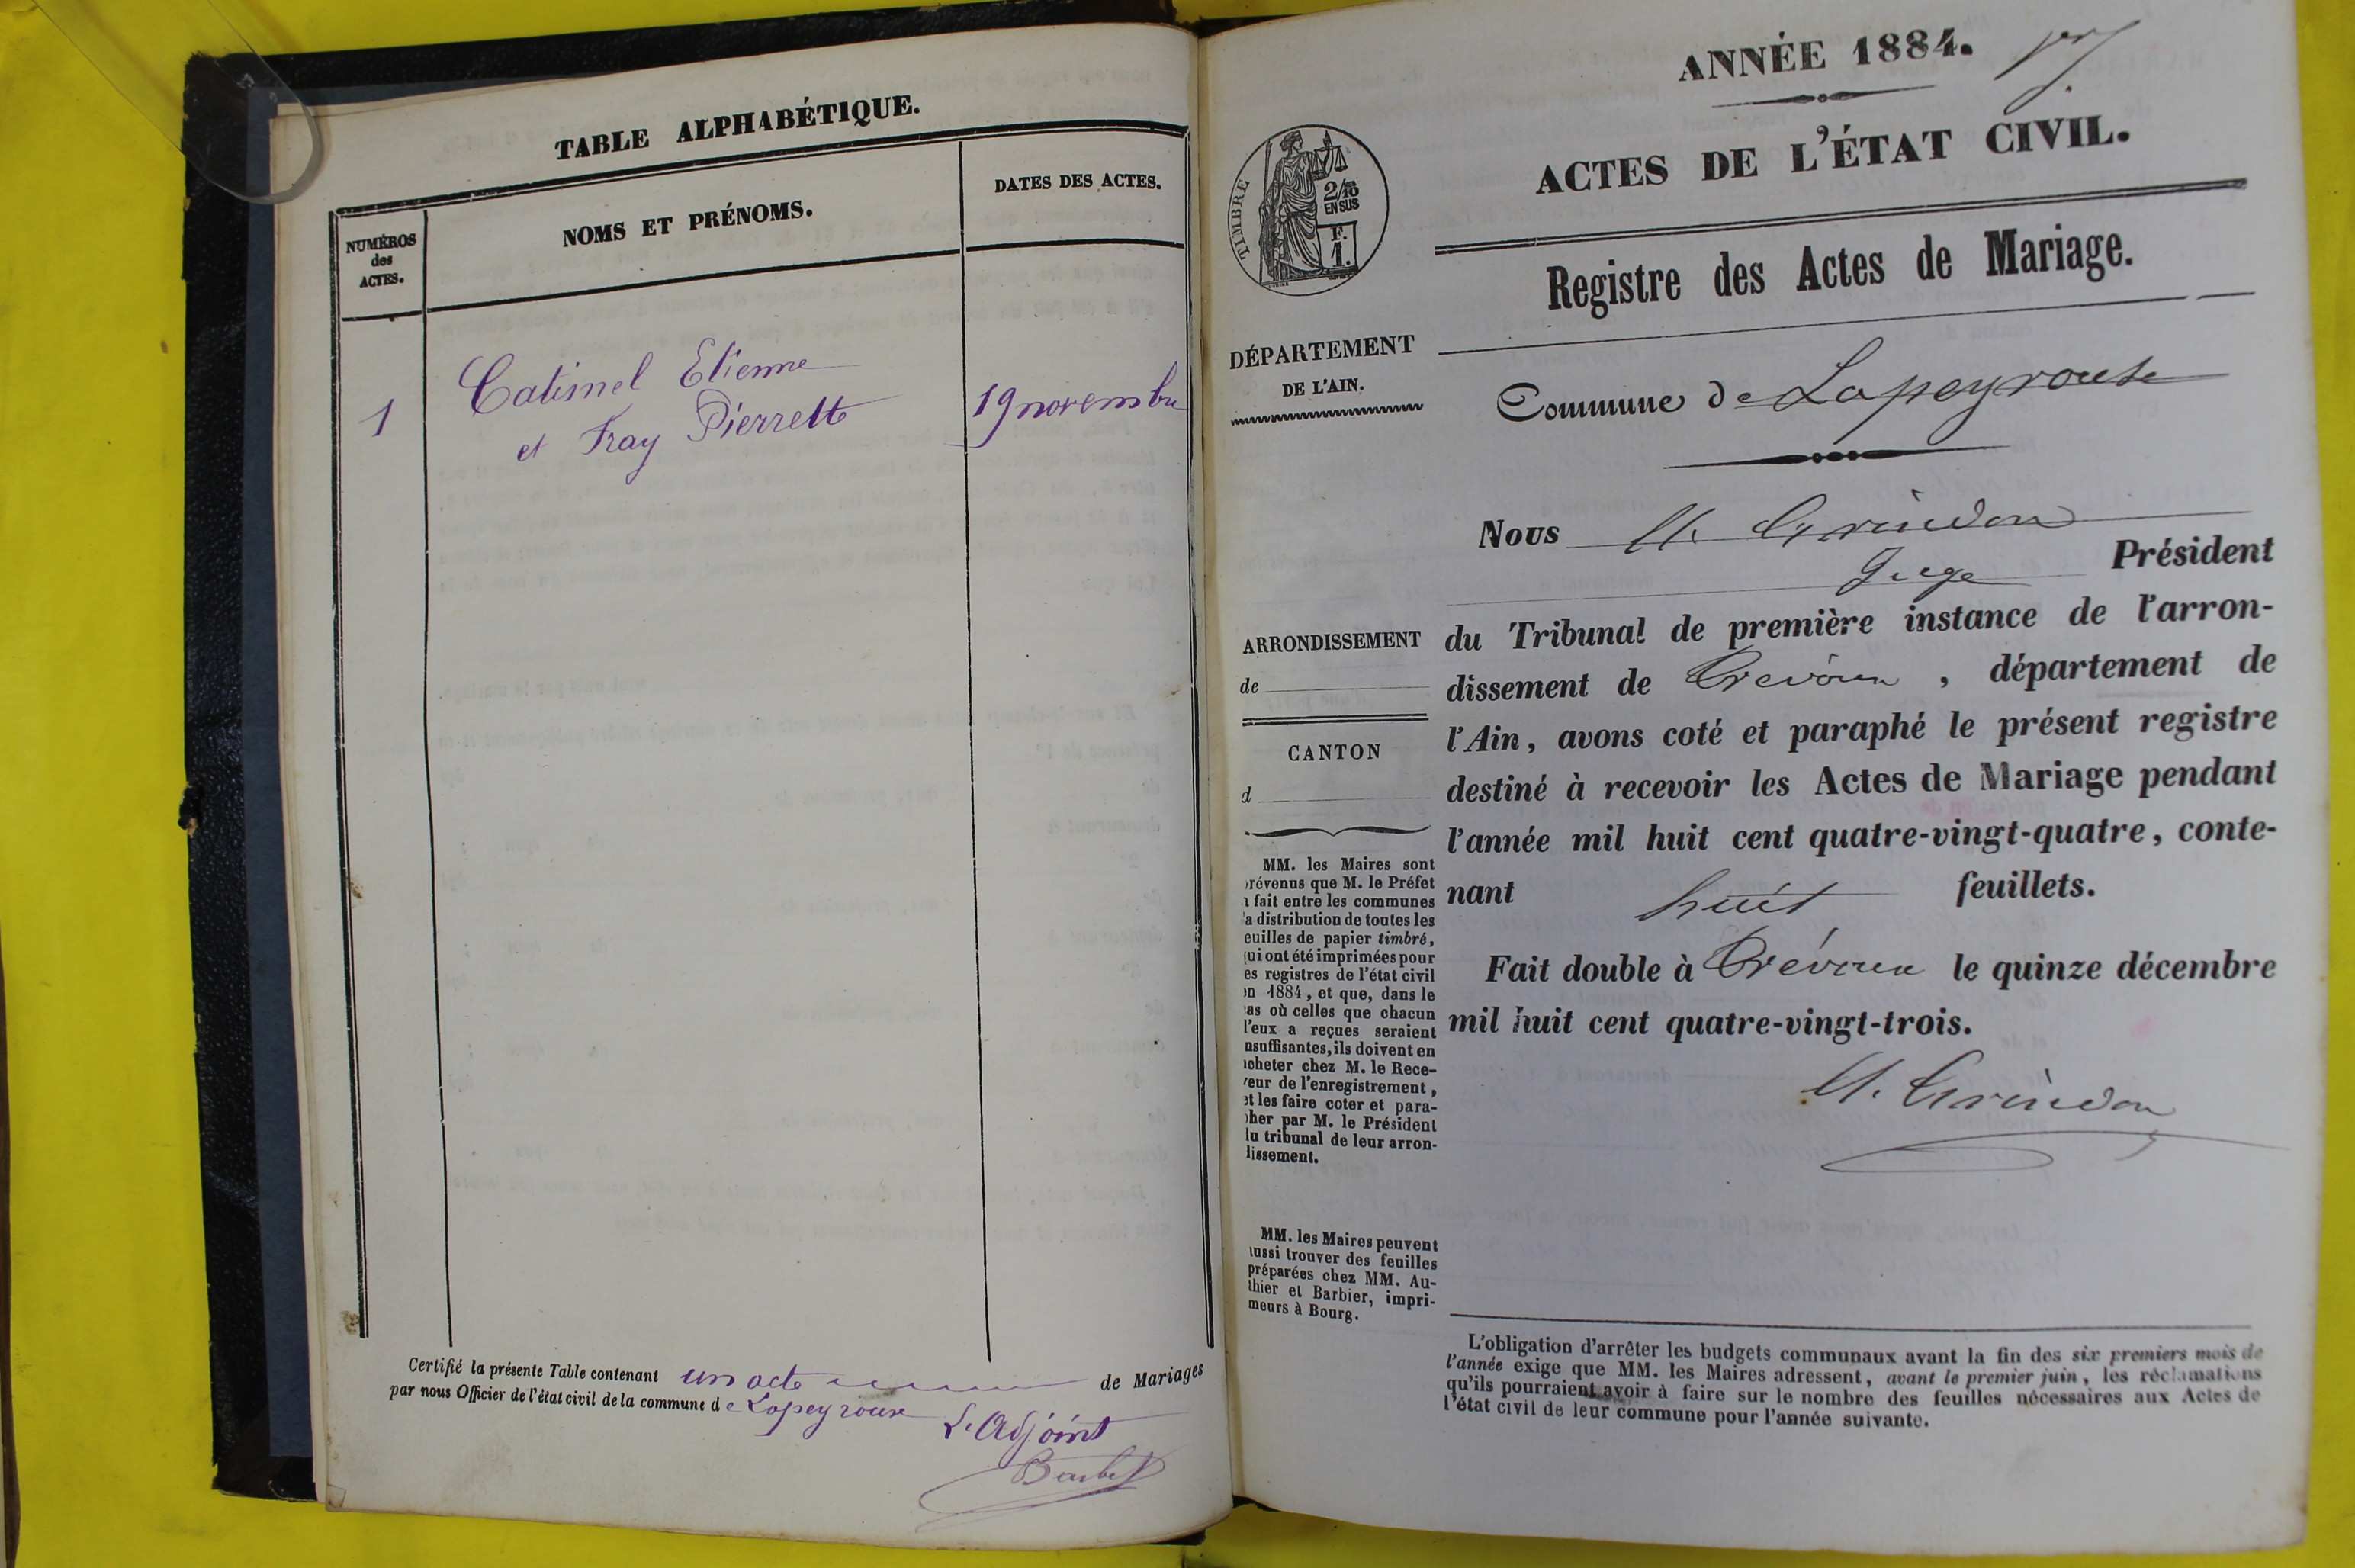 TABLE ALPHABÉTIQUE.
NUMÉROS
des
ACTES.
NOMS ET PRÉNOMS.
DATES DES ACTES.
1
Catimel Etienne
et Fray Pierrette
19 novembre
Certifié la présente Table contenant un acte de Mariages
par nous Officier de l'état civil de la commune de Lapeyrouse
L'Adjoint
ANNÉE 1884.
ACTES DE L'ÉTAT CIVIL.
TIMBRE
2/10
EN SUS
F.
1.
Registre des Actes de Mariage.
DÉPARTEMENT
DE L'AIN.
Commune de Lapeyrouse
Nous Grindon
Juge Président
ARRONDISSEMENT
de
CANTON
d
du Tribunal de première instance de l'arron-
dissement de Trévoux, département de
l'Ain, avons coté et paraphé le présent registre
destiné à recevoir les Actes de Mariage pendant
l'année mil huit cent quatre-vingt-quatre, conte-
nant huit feuillets.
Fait double à Trévoux le quinze décembre
mil huit cent quatre-vingt-trois.
Grindon
MM. les Maires sont
révenus que M. le Préfet
fait entre les communes
a distribution de toutes les
euilles de papier timbré,
ui ont été imprimées pour
es registres de l'état civil
n 1884, et que, dans le
as où celles que chacun
l'eux a reçues seraient
nsuffisantes, ils doivent en
cheter chez M. le Rece-
veur de l'enregistrement,
et les faire coter et para-
pher par M. le Président
lu tribunal de leur arron-
lissement.
MM. les Maires peuvent
ussi trouver des feuilles
préparées chez MM. Au-
thier et Barbier, impri-
meurs à Bourg.
L'obligation d'arrêter les budgets communaux avant la fin des six premiers mois de
l'année exige que MM. les Maires adressent, avant le premier juin, les réclamations
qu'ils pourraient avoir à faire sur le nombre des feuilles nécessaires aux Actes de
l'état civil de leur commune pour l'année suivante.